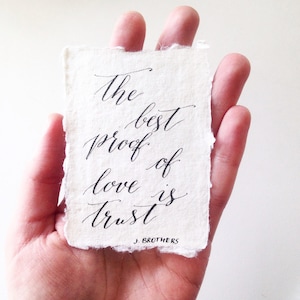 The
best
proof
of
love is
trust
J. BROTHERS